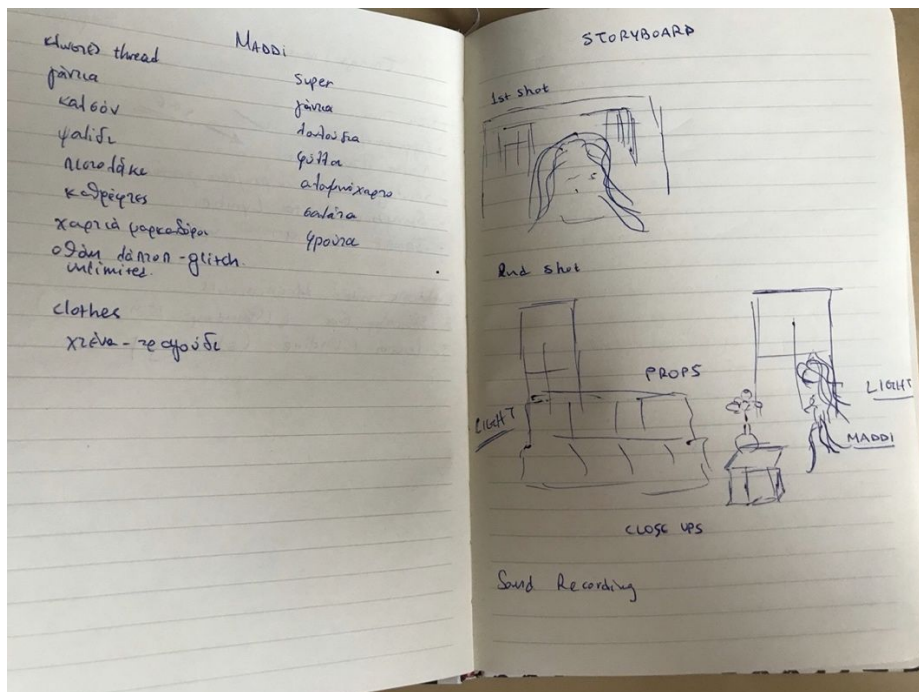 MADDI
κλωστές thread
γάντια
καλσόν
ψαλίδι
πιστολάκι
καθρέφτες
χαρτιά μαρκαδόροι
οθόνη λάπτοπ - glitch
unlimited.
clothes
χτένα - τραγούδι
Super
γάντια
λουλούδια
φύλλα
αλουμινόχαρτο
σαλάτα
φρούτα
STORYBOARD
1st shot
2nd shot
PROPS
LIGHT
LIGHT
MADDI
CLOSE UPS
Sound Recording